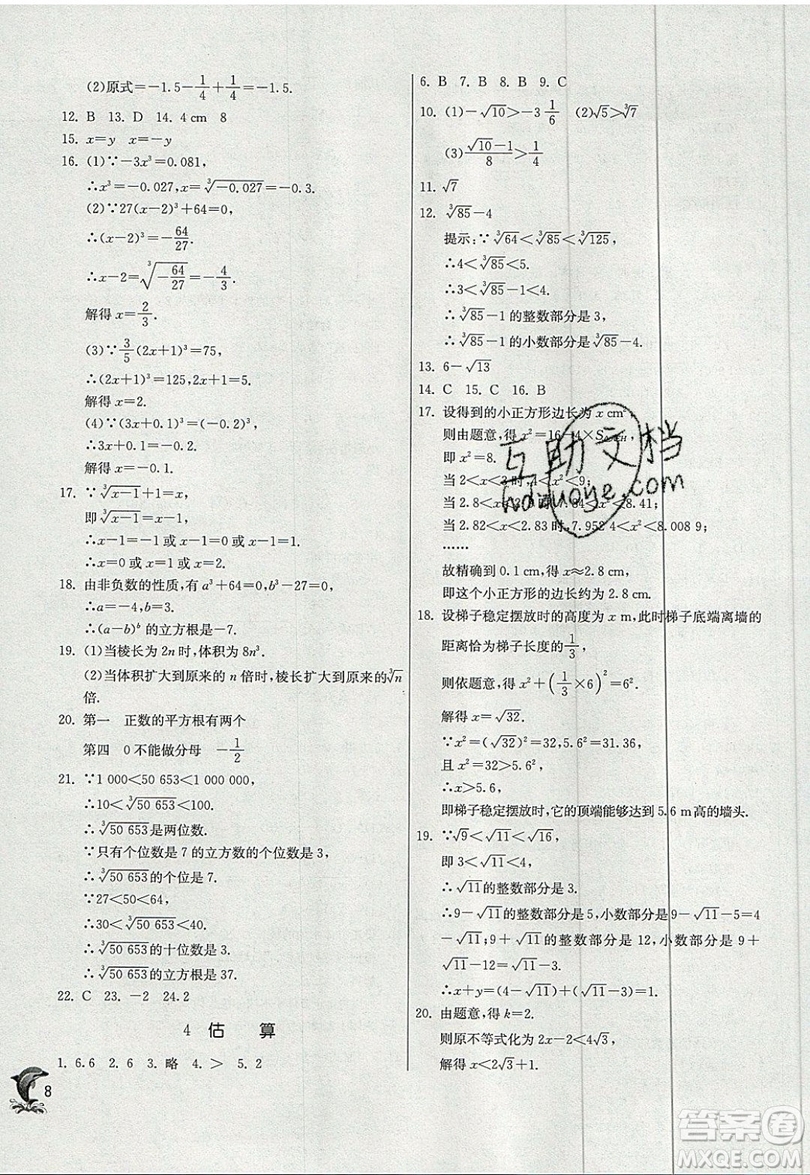 (2)原式=-1.5-1/4+1/4=-1.5.
12. B 13. D 14. 4 cm 8
15. x=y x=-y
16. (1)∵-3x³=0.081,
∴x³=-0.027,x=∛(-0.027)=-0.3.
(2)∵27(x-2)³+64=0,
∴(x-2)³=-64/27.
∴x-2=∛(-64/27)=-4/3.
解得 x=2/3.
(3)∵3/5(2x+1)³=75,
∴(2x+1)³=125,2x+1=5.
解得 x=2.
(4)∵(1+3x)³=0.343,
∴1+3x=0.7.
解得 x=-0.1.
17. ∵∛(x-1)+1=x,
即∛(x-1)=x-1,
∴x-1=-1或 x-1=0或 x-1=1.
∴x=0或 x=1或 x=2.
18. 由非负数的性质,有 a³+64=0,b³-27=0.
∴a=-4,b=3.
∴(a-b)ᵇ的立方根是-7.
19. (1)当棱长为 2n 时,体积为 8n³.
(2)当体积扩大到原来的 n 倍时,棱长扩大到原来的∛n
倍.
20. 第一 正数的平方根有两个
第四 0不能做分母 -1/2
21. ∵1 000<50 653<1 000 000,
∴10<∛50 653<100.
∴∛50 653是两位数.
∵只有个位数是 7 的立方数的个位数是 3,
∴∛50 653的个位数是 7.
∵27<50<64,
∴30<∛50 653<40.
∴∛50 653的十位数是 3.
∴∛50 653的立方根是 37.
22. C 23. -2 24.2
4 估算
1. 6.6 2. 6 3. 略 4. > 5. 2
8
6. B 7. B 8. B 9. C
10. (1)-√10>-3 1/6 (2)√5>∛7
(3)(√10-1)/8>1/4
11. √7
12. ∛85-4
提示:∵∛64<∛85<∛125,
∴4<∛85<5.
∴3<∛85-1<4.
∴∛85-1的整数部分是 3,
∴∛85-1的小数部分是∛85-4.
13. 6-√13
14. C 15. C 16. B
17. 设得到的小正方形边长为 x cm
则由题意,得 x²=16-4×S
即 x²=8.
当 2<x<3时,4<x²<9;
当 2.8<x<2.9时,7.84<x²<8.41;
当 2.82<x<2.83时,7.952 4<x²<8.008 9;
……
故精确到 0.1 cm,得 x≈2.8 cm,
即这个小正方形的边长约为 2.8 cm.
18. 设梯子稳定摆放时的高度为 x m,此时梯子底端离墙的
距离恰为梯子长度的1/3,
则依题意,得 x²+(1/3×6)²=6².
解得 x=√32.
∵x²=(√32)²=32,5.6²=31.36,
且 x²=32>5.6²,
∴x>5.6,
即梯子稳定摆放时,它的顶端能够达到 5.6 m 高的墙头.
19. ∵√9<√11<√16,
即 3<√11<4.
∴√11的整数部分是 3.
∴9-√11的整数部分是 5,小数部分是 9-√11-5=4
-√11;9+√11的整数部分是 12,小数部分是 9+
√11-12=√11-3.
∴x+y=(4-√11)+(√11-3)=1.
20. 由题意,得 k=2.
则原不等式化为 2x-2<4√3,
解得 x<2√3+1.
互助文档
hdzuoye.com
答案卷
MXQE.COM